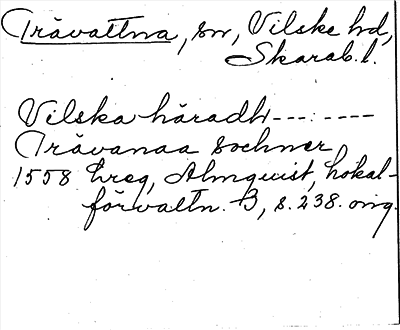 Trävattna, sn, Vilske hd,
Skarab. l.
Vilska häradh ---:----
Trävanaa sochner
1558 Ereg, Almquist, Lokal-
förvaltn. B, s. 238. omg.